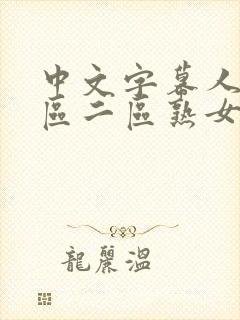 中文字幕人
區二區熟女
龍麗溫